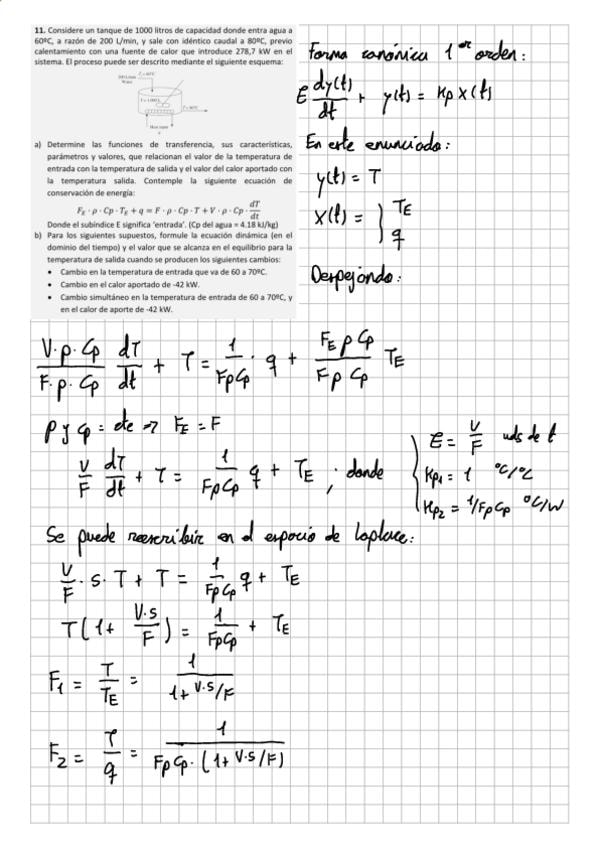 11. Considere un tanque de 1000 litros de capacidad donde entra agua a
60ºC, a razón de 200 L/min, y sale con idéntico caudal a 80ºC, previo
calentamiento con una fuente de calor que introduce 278,7 kW en el
sistema. El proceso puede ser descrito mediante el siguiente esquema:
a) Determine las funciones de transferencia, sus características,
parámetros y valores, que relacionan el valor de la temperatura de
entrada con la temperatura de salida y el valor del calor aportado con
la temperatura salida. Contemple la siguiente ecuación de
conservación de energía:
F_E · ρ · Cp · T_E + q = F · ρ · Cp · T + V · ρ · Cp · dT/dt
Donde el subíndice E significa 'entrada'. (Cp del agua = 4.18 kJ/kg)
b) Para los siguientes supuestos, formule la ecuación dinámica (en el
dominio del tiempo) y el valor que se alcanza en el equilibrio para la
temperatura de salida cuando se producen los siguientes cambios:
• Cambio en la temperatura de entrada que va de 60 a 70ºC.
• Cambio en el calor aportado de -42 kW.
• Cambio simultáneo en la temperatura de entrada de 60 a 70ºC, y
en el calor de aporte de -42 kW.
Forma canónica 1er orden:
Ɛ dy(t)/dt + y(t) = Kp X(t)
En este enunciado:
y(t) = T
X(t) = } T_E
q
Despejando:
V·ρ·Cp/F·ρ·Cp dT/dt + T = 1/FρCp · q + F_E ρ Cp/F ρ Cp T_E
ρ y Cp = cte => F_E = F
V/F dT/dt + T = 1/FρCp q + T_E ; donde
Ɛ = V/F uds de t
Kp1 = 1 ºC/ºC
Kp2 = 1/FρCp ºC/W
Se puede reescribir en el espacio de Laplace:
V/F · S · T + T = 1/FρCp q + T_E
T(1 + V·S/F) = 1/FρCp + T_E
F1 = T/T_E = 1/1+V·S/F
F2 = T/q = 1/FρCp·(1+V·S/F)